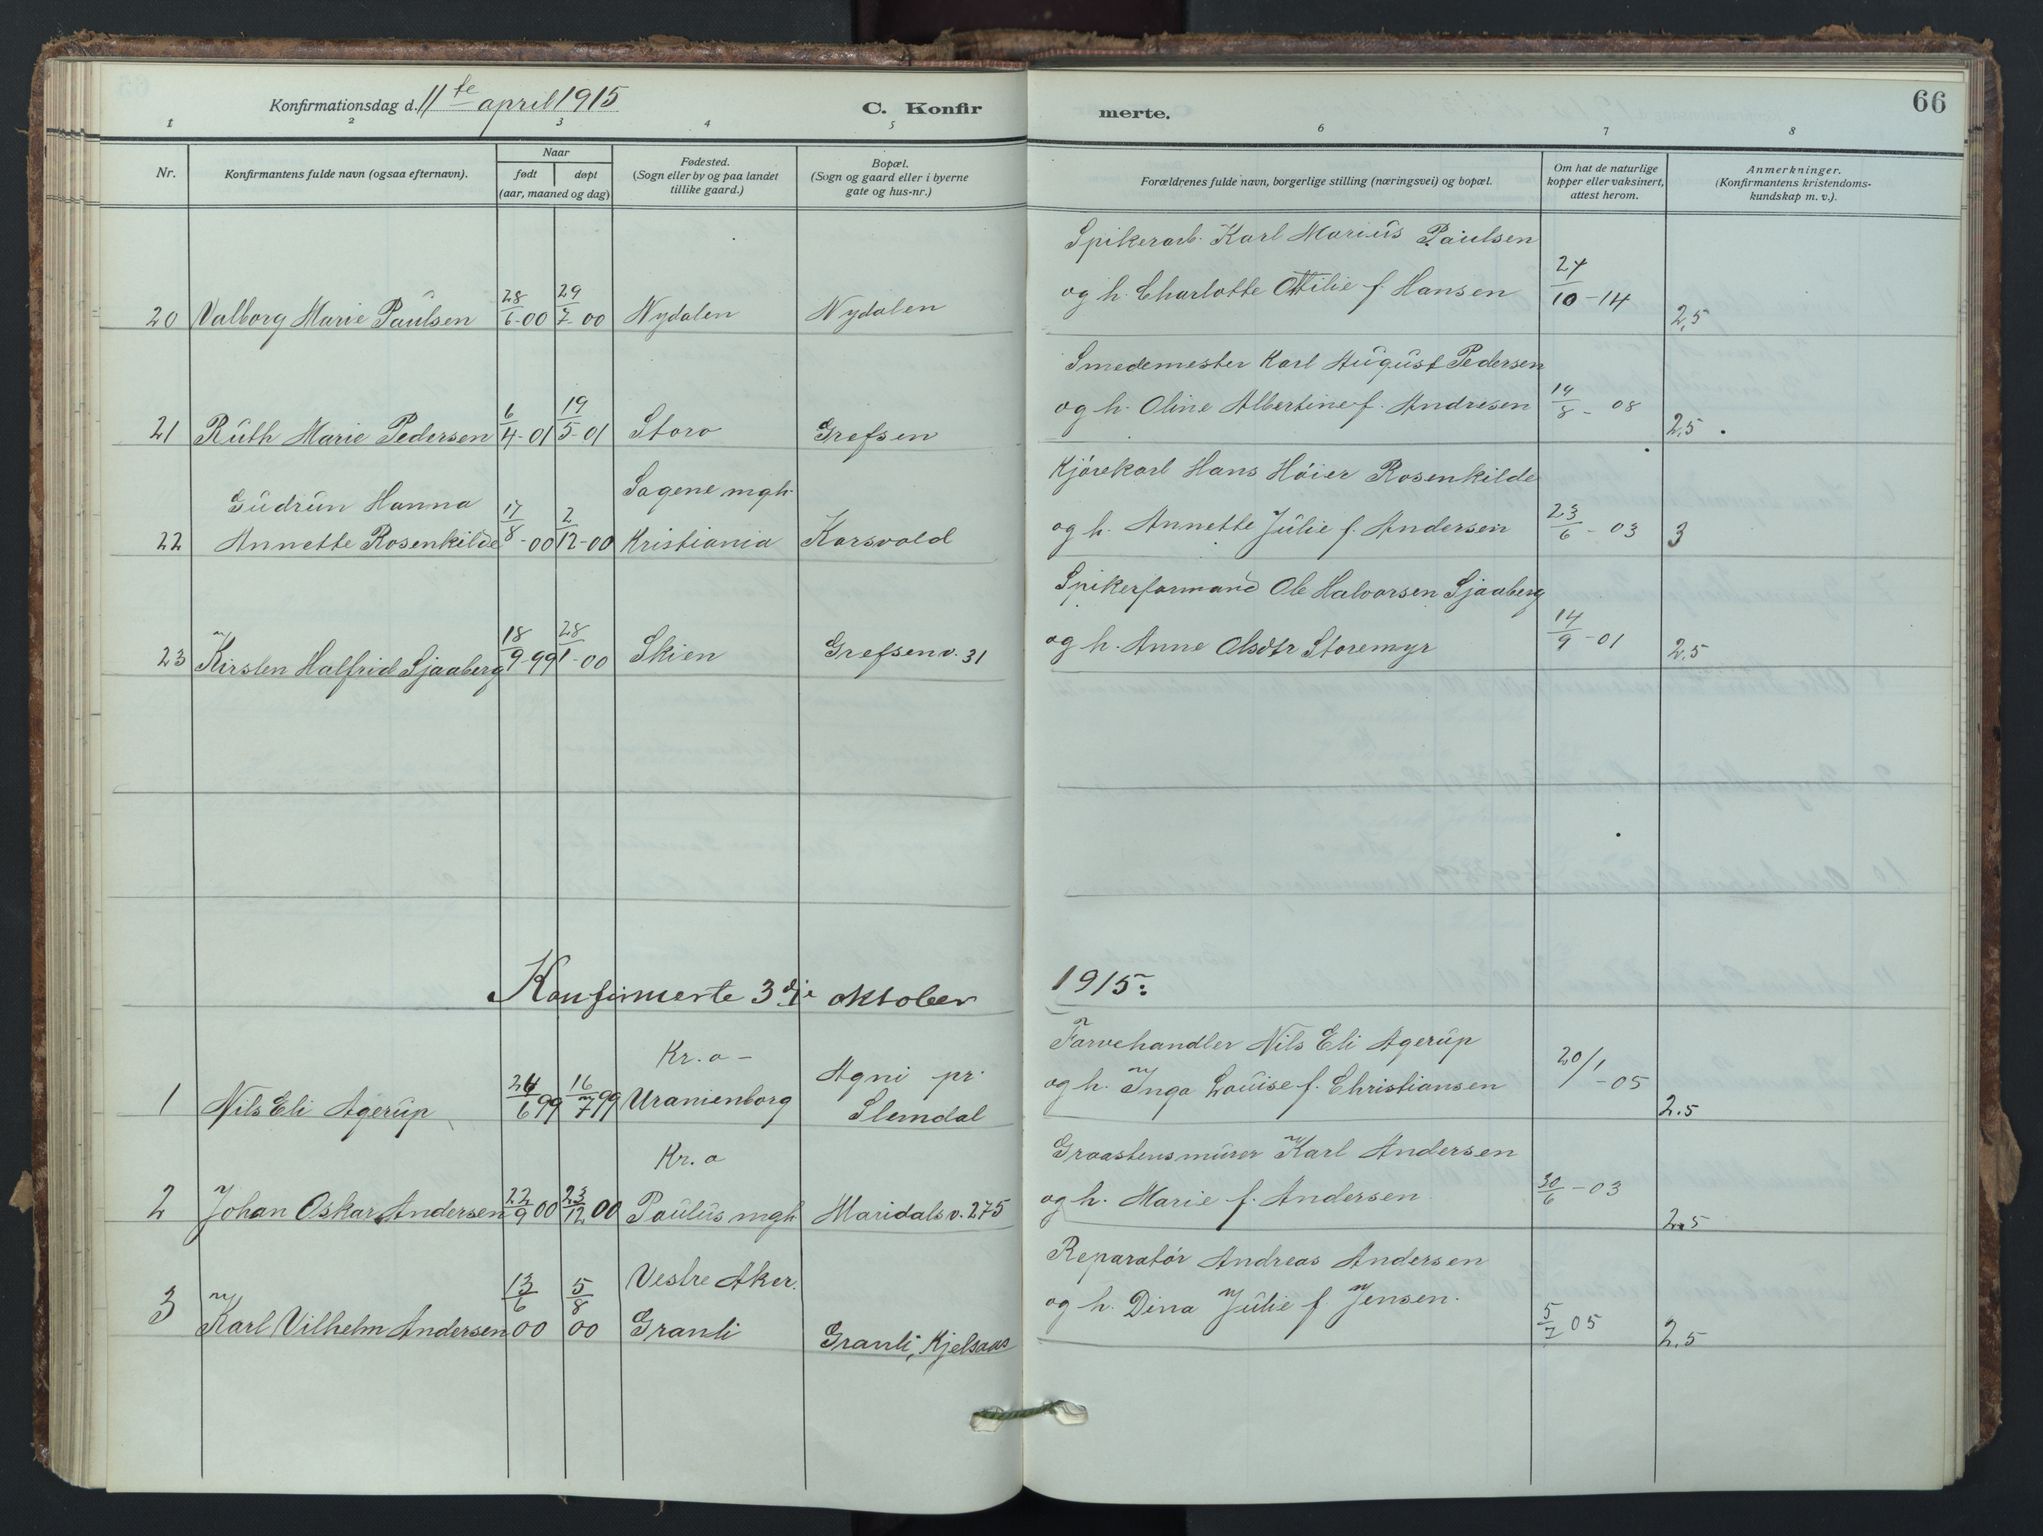 Konfirmationsdag d. 11te april 1915
C. Konfirmerte.
66
1 2 3 4 5 6 7 8
Nr.
Konfirmantens fulde navn (ogsaa efternavn).
Naar
født døpt
(aar, maaned og dag)
Fødested.
(Sogn eller by og paa landet
tillike gaard.)
Bopæl.
(Sogn og gaard eller i byerne
gate og hus-nr.)
Forældrenes fulde navn, borgerlige stilling (næringsvei) og bopæl.
Om hat de naturlige
kopper eller vaksinert,
attest herom.
Anmerkninger.
(Konfirmantens kristendoms-
kundskap m. v.).
20 Valborg Marie Paulsen 28/6-00 29/7-00 Nydalen Nydalen
Spikerarb. Karl Marius Paulsen
og h. Charlotte Ottilie f Hansen 24/10-14 2,5
21 Ruth Marie Pedersen 6/4-01 19/5-01 Storo Grefsen
Smedemester Karl August Pedersen
og h. Oline Albertine f. Andresen 14/8-08 2.5
Gudrun Hanna
22 Annette Rosenkilde 17/8-00 2/12-00
Sagene mgh.
Kristiania
Korsvold
Kjørekarl Hans Høier Rosenkilde
og h. Annette Julie f. Andersen 23/6-03 3
23 Kirsten Halfrid Sjaaberg 18/9-99 28/1-00 Skien Grefsenv. 31
Spikerformand Ole Halvorsen Sjaaberg
og h. Anne Olsdtr Storemyr 14/9-01 2.5
Konfirmerte 3dje oktober 1915:
1 Nils Eli Agerup 24/6 99 16/7 99
Kr.a -
Uranienborg
Agni pr.
Slemdal
Farvehandler Nils Eli Agerup
og h. Inga Louise f. Christiansen 20/1-05 2.5
2 Johan Oskar Andersen 22/9 00 23/12 00
Kr.a
Paulus mgh
Maridalsv. 275
Graastensmurer Karl Andersen
og h. Marie f. Andersen 30/6-03 2.5
3 Karl Vilhelm Andersen 13/6 00 5/8 00
Vestre Aker.
Granli
Granli, Kjelsaas
Reparatør Andreas Andersen
og h. Dina Julie f Jensen. 5/7 05 2.5